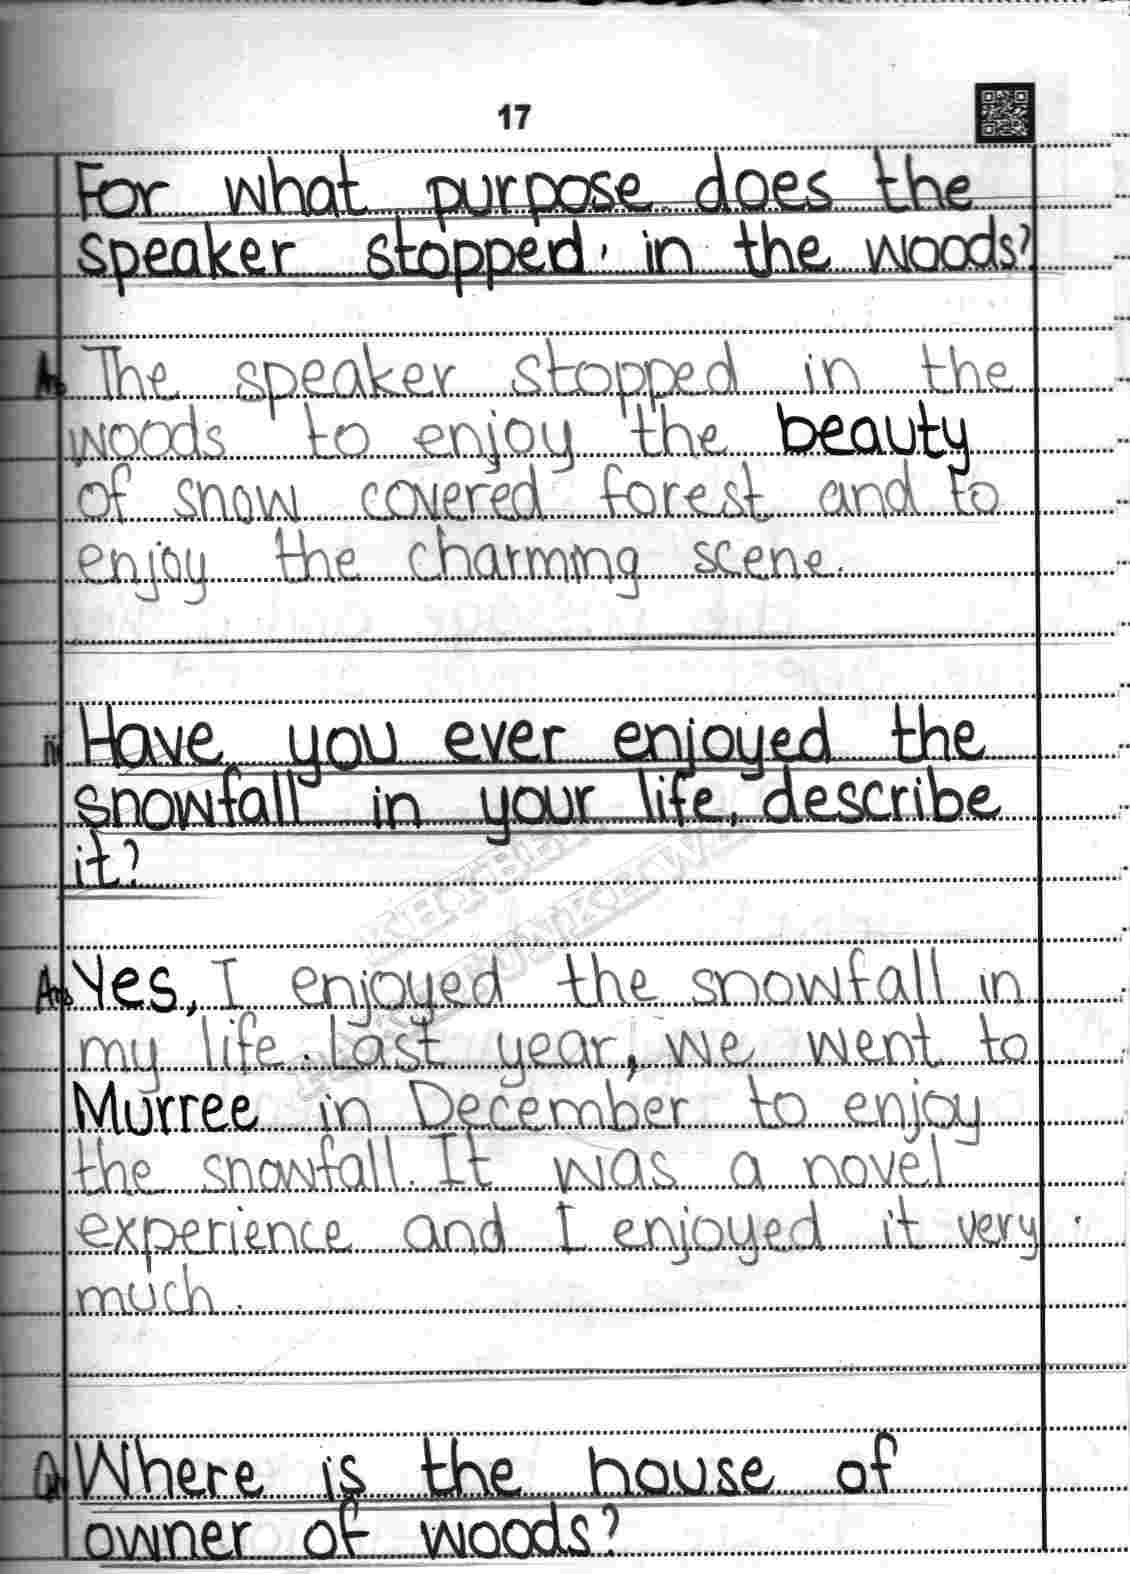 17
For what purpose does the
speaker stopped, in the woods?
Ans The speaker stopped in the
woods to enjoy the beauty
of snow covered forest and to
enjoy the charming scene.
ii Have you ever enjoyed the
snowfall in your life, describe
it?
KHYBER
PAKHTUNKHWA
Ans Yes, I enjoyed the snowfall in
my life. Last year, we went to
Murree in December to enjoy
the snowfall. It was a novel
experience and I enjoyed it very
much.
Where is the house of
owner of woods?